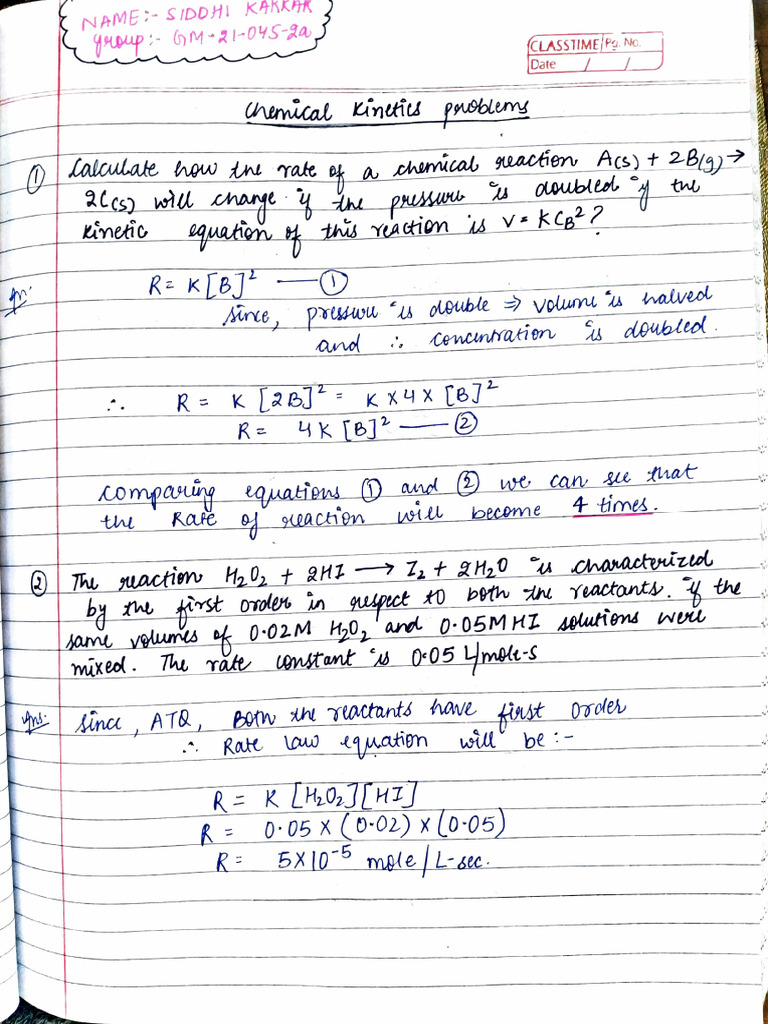 NAME:- SIDDHI KAKKAR
group:- GM-21-045-2a
CLASSTIME Pg. No.
Date / /
Chemical Kinetics problems
① Calculate how the rate of a chemical reaction A(s) + 2B(g) →
2C(s) will change if the pressure is doubled if the
kinetic equation of this reaction is V = KCB²?
R = K[B]² —— ①
since, pressure is double ⇒ volume is halved
and ∴ concentration is doubled.
∴ R = K [2B]² = K x 4 x [B]²
R = 4K [B]² —— ②
comparing equations ① and ② we can see that
the Rate of reaction will become 4 times.
② The reaction H₂O₂ + 2HI → I₂ + 2H₂O is characterized
by the first order in respect to both the reactants. if the
same volumes of 0.02M H₂O₂ and 0.05M HI solutions were
mixed. The rate constant is 0.05 L/mole-s
Ans:- Since, ATQ, Both the reactants have first order
∴ Rate law equation will be :-
R = K [H₂O₂][HI]
R = 0.05 x (0.02) x (0.05)
R = 5x10⁻⁵ mole/L-sec.